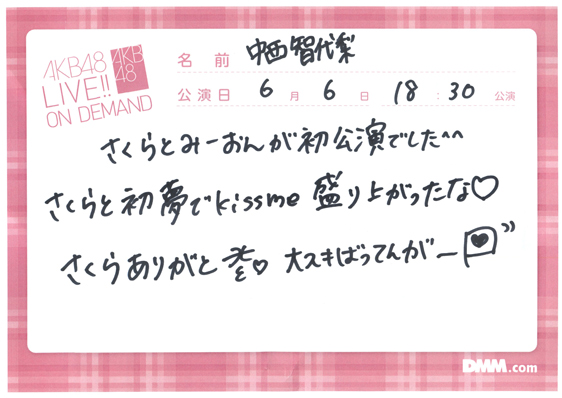 AKB48
LIVE!!
ON DEMAND
AKB
48
名前 中西智代梨
公演日 6月6日 18:30 公演
さくらとみーおんが初公演でした^^
さくらと初夢でkissme 盛り上がったな♡
さくらありがと を♡ 大スキばってんがー
DMM.com